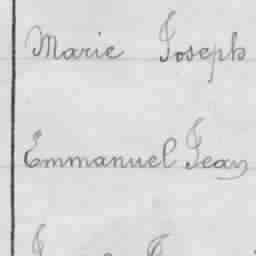 Marie Joseph
Emmanuel Jean